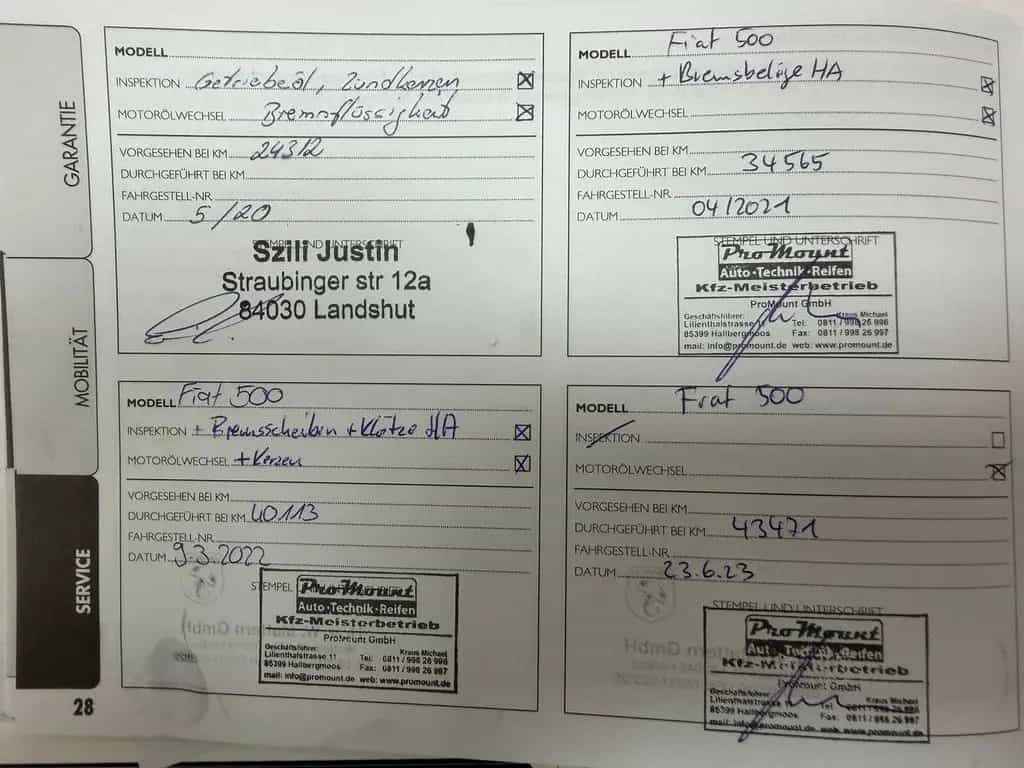 GARANTIE
MOBILITÄT
SERVICE
28
MODELL
INSPEKTION Getriebeöl, Zündkerzen
MOTORÖLWECHSEL Bremsflüssigkeit
VORGESEHEN BEI KM 24312
DURCHGEFÜHRT BEI KM
FAHRGESTELL-NR.
DATUM 5/20
STEMPEL UND UNTERSCHRIFT
Szili Justin
Straubinger str 12a
84030 Landshut
MODELL Fiat 500
INSPEKTION + Bremsbeläge HA
MOTORÖLWECHSEL
VORGESEHEN BEI KM
DURCHGEFÜHRT BEI KM 34565
FAHRGESTELL-NR.
DATUM 04/2021
STEMPEL UND UNTERSCHRIFT
ProMount
Auto·Technik·Reifen
Kfz-Meisterbetrieb
ProMount GmbH
Geschäftsführer: Klaus Michael
Lilienthalstrasse 11 Tel: 0811 / 998 26 996
85399 Hallbergmoos Fax: 0811 / 998 26 997
mail: info@promount.de web: www.promount.de
MODELL Fiat 500
INSPEKTION + Bremsscheiben + Klötze HA
MOTORÖLWECHSEL + Kerzen
VORGESEHEN BEI KM
DURCHGEFÜHRT BEI KM 40113
FAHRGESTELL-NR.
DATUM 9.3.2022
STEMPEL
ProMount
Auto·Technik·Reifen
Kfz-Meisterbetrieb
ProMount GmbH
Geschäftsführer: Klaus Michael
Lilienthalstrasse 11 Tel: 0811 / 998 26 996
85399 Hallbergmoos Fax: 0811 / 998 26 997
mail: info@promount.de web: www.promount.de
MODELL Fiat 500
INSPEKTION
MOTORÖLWECHSEL
VORGESEHEN BEI KM
DURCHGEFÜHRT BEI KM 43471
FAHRGESTELL-NR.
DATUM 23.6.23
STEMPEL UND UNTERSCHRIFT
ProMount
Auto·Technik·Reifen
Kfz-Meisterbetrieb
ProMount GmbH
Geschäftsführer: Klaus Michael
Lilienthalstrasse 11 Tel: 0811 / 998 26 996
85399 Hallbergmoos Fax: 0811 / 998 26 997
mail: info@promount.de web: www.promount.de